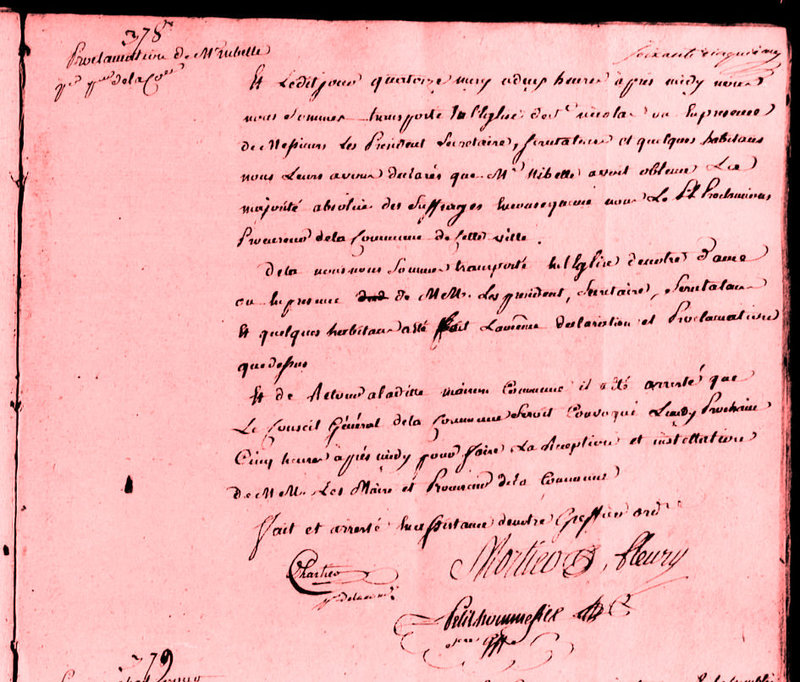 378e
Proclamation de Mr Ribelle
pr de la Cone
soixante cinquieme
Et Ledit jour quatorze mars a deux heures après midy nous
nous sommes transporté En l'Eglise de St nicolas ou En presence
de Messieurs Les President Secretaire, Scrutateurs et quelques habitans
nous Leurs avons declarés que Mr Ribelle avoit obtenu La
majorité absolue des suffrages En consequence nous Le Proclamions
Procureur de la Commune de Cette ville.
De la nous nous sommes transporté En l'Eglise de notre Dame
ou En presence de MM. Les president, Secretaire, Scrutateurs
Et quelques habitans a été fait La même declaration et Proclamation
que dessus
Et de Retour a la ditte maison Commune il a été arresté que
Le Conseil Général de la Commune Seroit Convoqué Lundy Prochain
Cinq heures après midy pour faire La Reception et installation
de MM. Les Maire et Procureur de la Commune
Fait et arresté En assistance de notre Greffier ordre
Mortier Fleury
Chartier
pr de la com
Petithommefils
gff
379